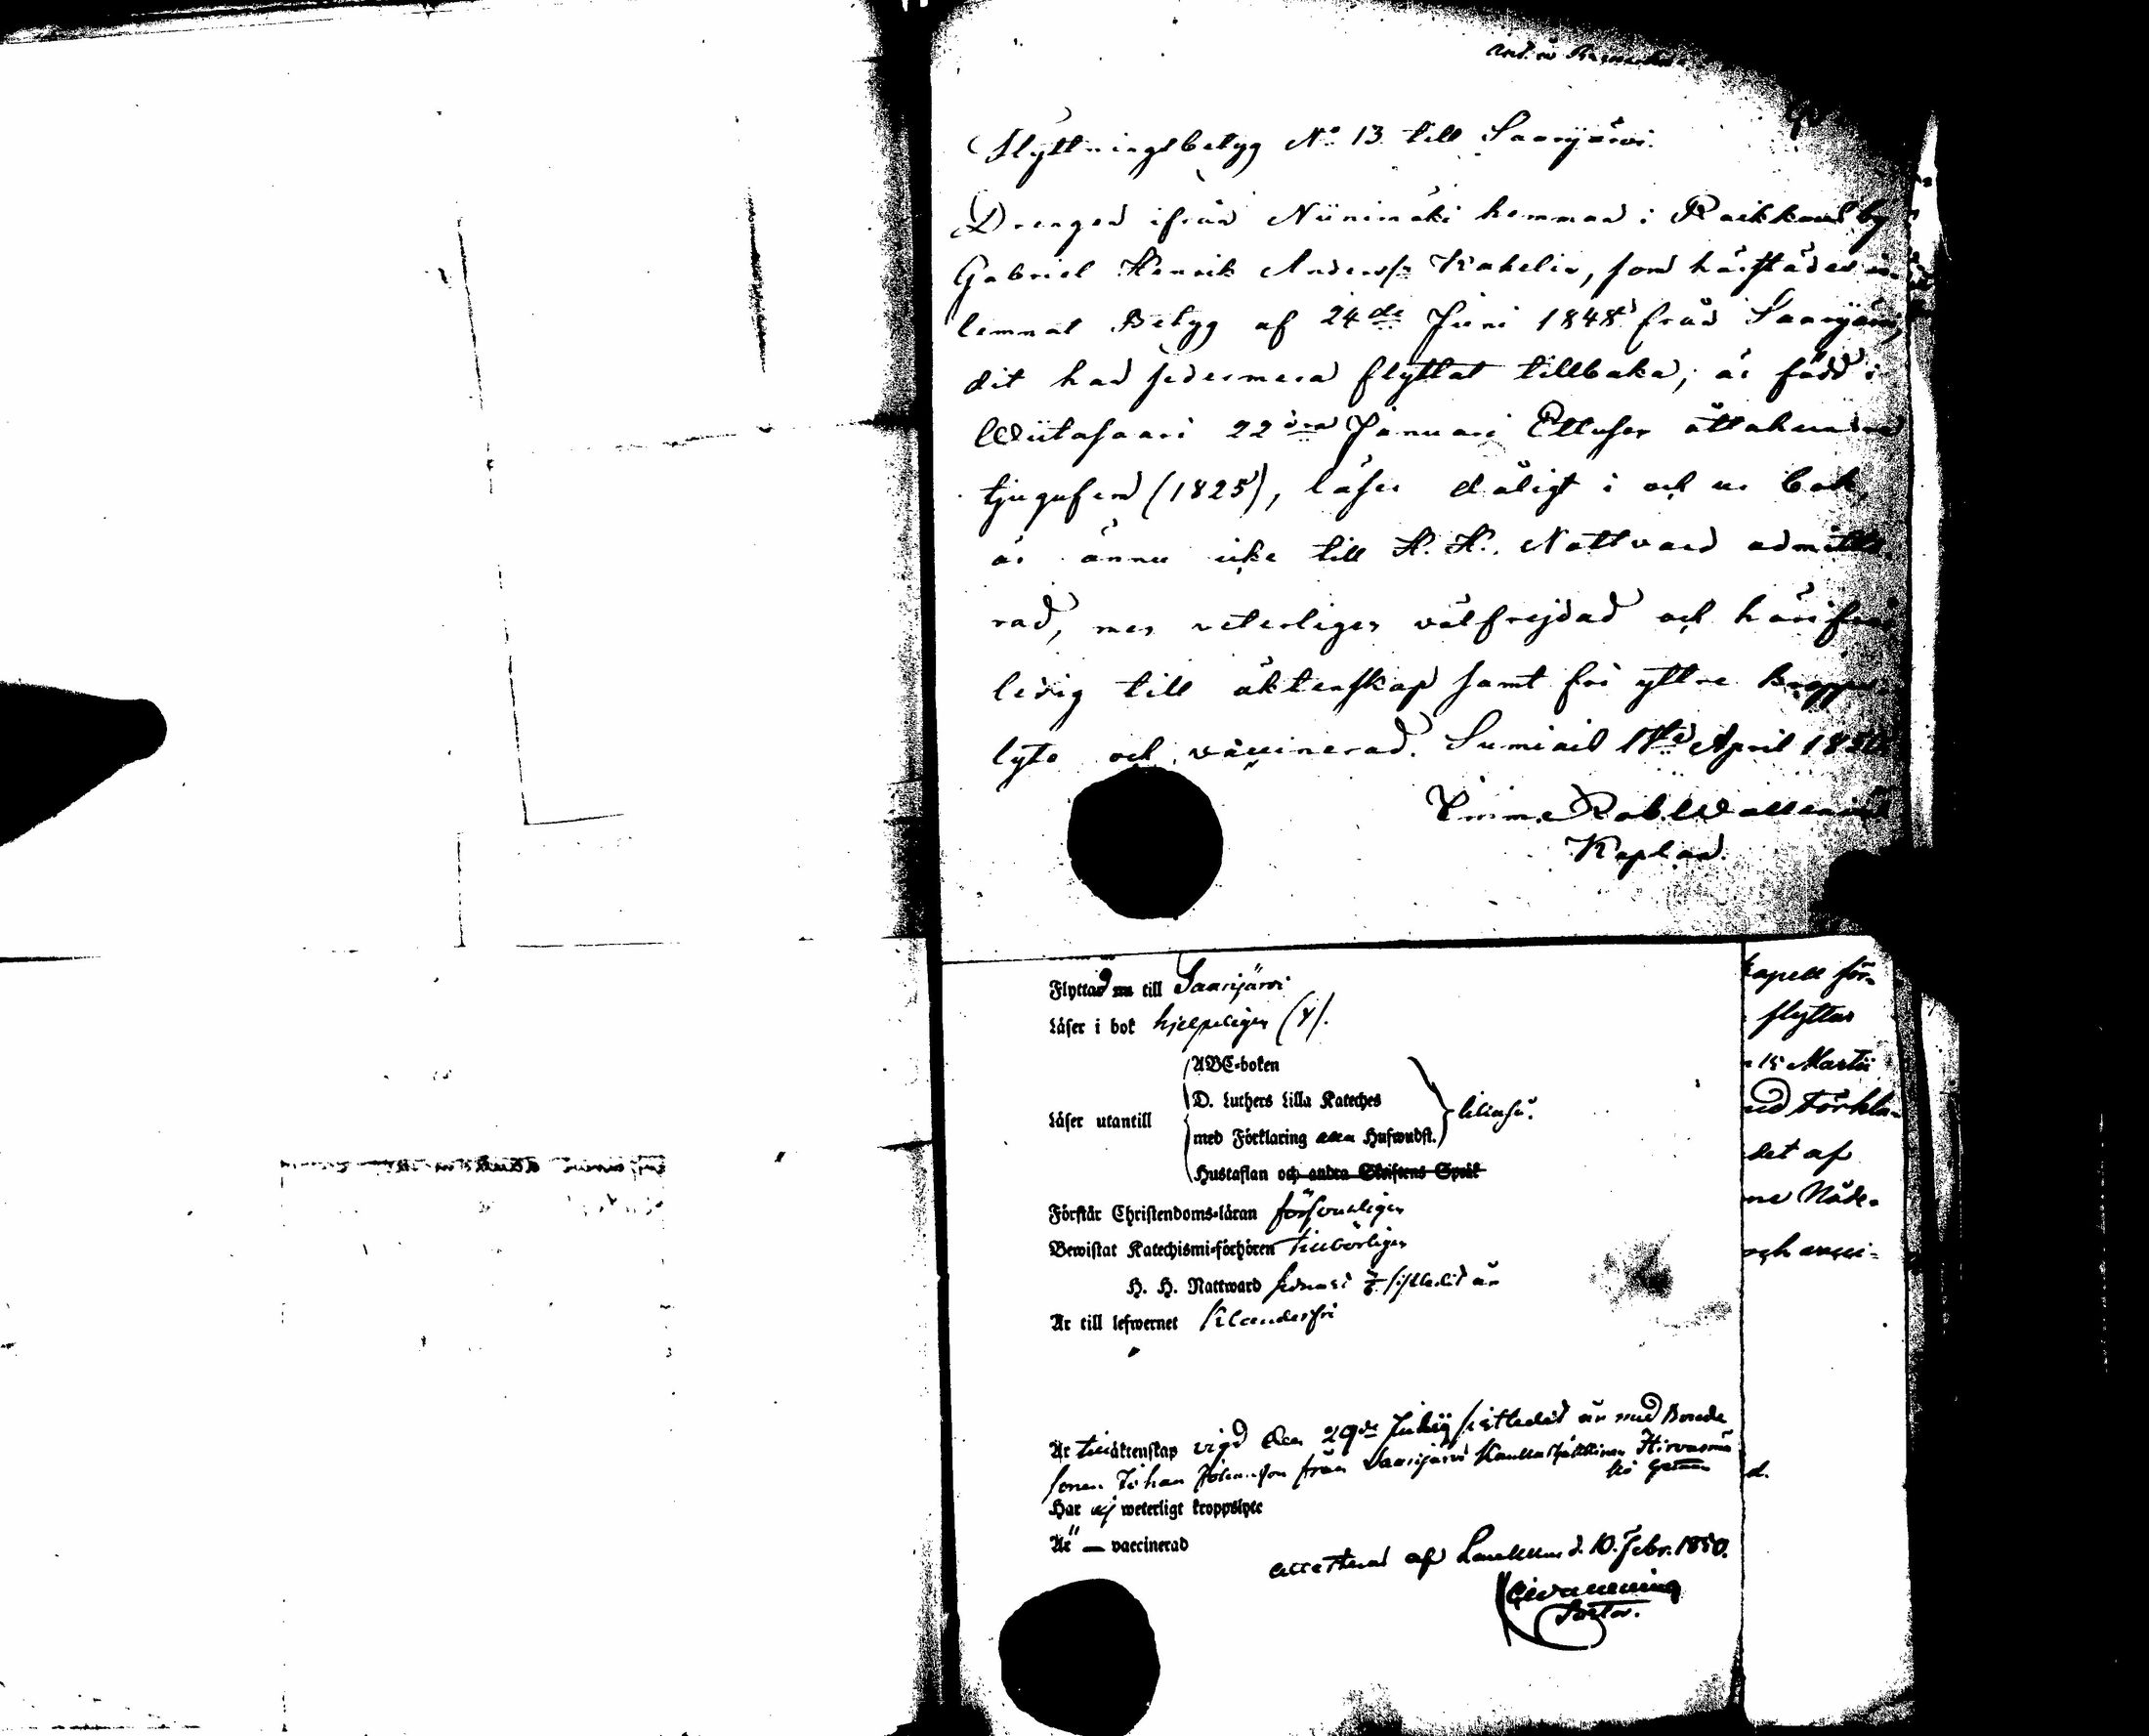 Flyttningsbetyg No 13 till Saarijärvi.
Drengen ifrån Niinimäki hemman i Raikkaus by
Gabriel Henrik Anderss: Kakelin, som härstädes
lemnat Betyg af 24de Juni 1848 från Saarijärvi,
dit han sedermera flyttat tillbaka, är född i
Wiitasaari 22dra Januari Ettusen åttahundra
tjugufem (1825), läser dåligt i och ur bok,
är ännu icke till H. H. Nattvard admitte-
rad, men veterligen välfrejdad och härifrån
ledig till äktenskap samt fri yttre kropps-
lyte och vaccinerad. Sumiais April
Kaplan.
Flyttad till Saarijärvi
Läser i bok hjelpeligen
Läser utantill
ABC-boken
D. Luthers Lilla Kateches
med Förklaring Hufwudst.
Hustaflan och andra Skriftens Språk
Förstår Christendoms-läran försvarligen
Bewistat Katechismi-förhören tillbörligen
H. H. Nattward sednast sistledit år
Är till lefwernet klanderfri
Är till äktenskap vigd den 29de sistledit år med Bonde
sonen Johan Johansson från Saarijärvi
Har ej weterligt kroppslyte
Är — vaccinerad
af d. 10. Febr. 1850.
Pastor.
kapell för-
flyttar
15 Martii
Förkla-
det af
Nåde-
och
d.